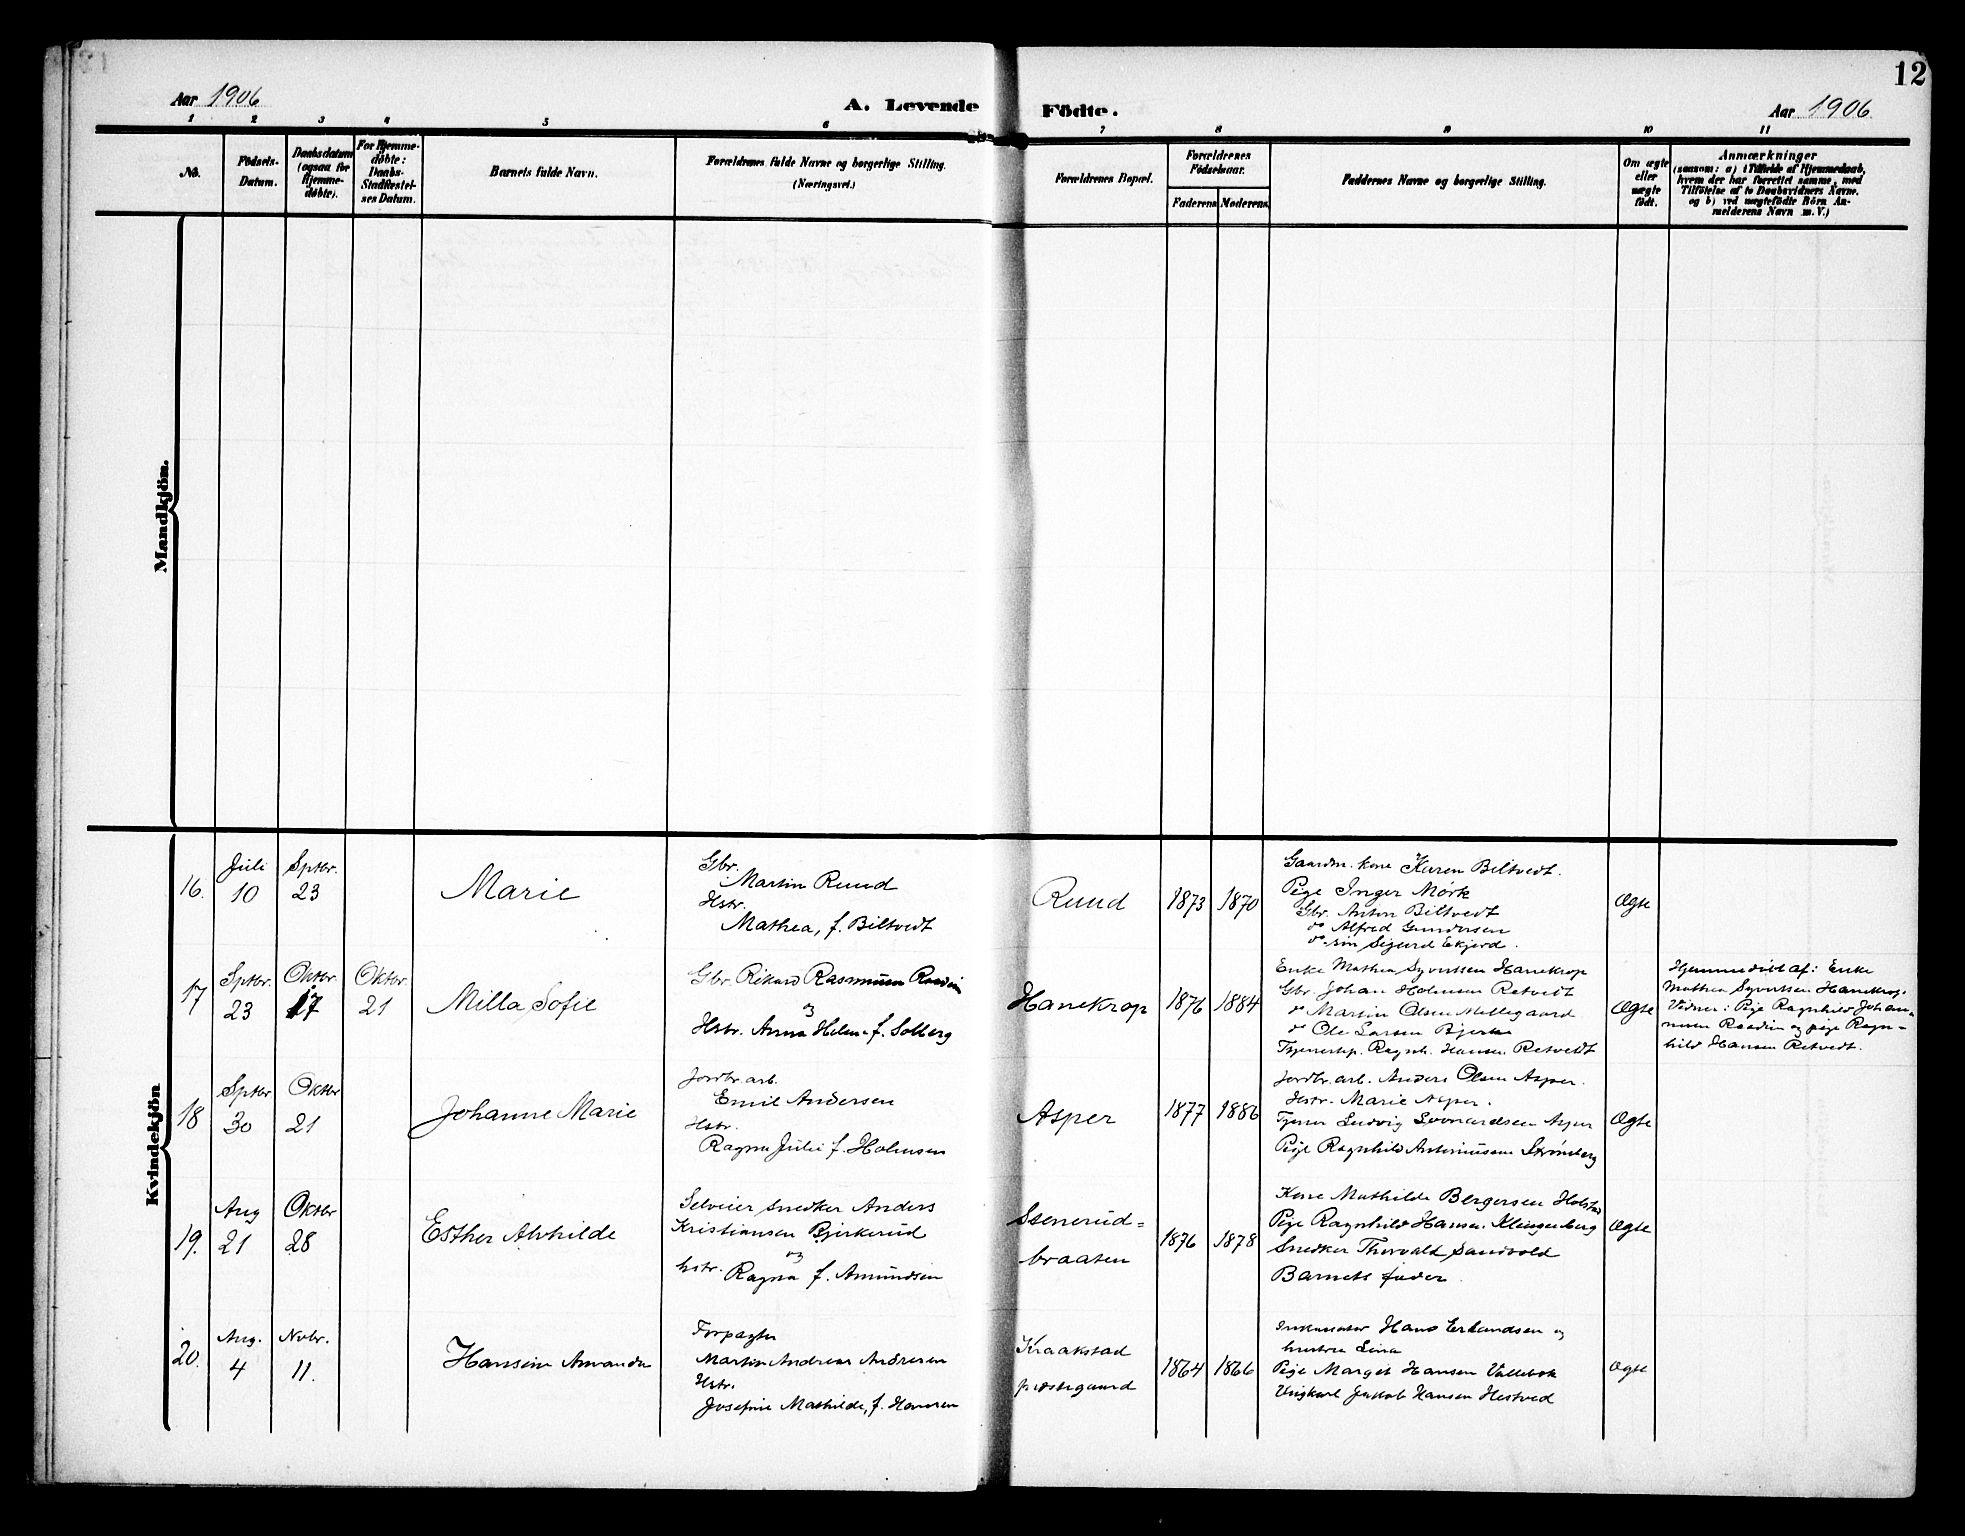 12
Aar 1906
A. Levende Födte.
Aar 1906
1 2 3 4 5 6 7 8 9 10 11
No.
Födsels-
Datum.
Daabsdatum
(ogsaa for
Hjemme-
döbte).
For Hjemme-
döbte:
Daabs-
Stadfæstel-
ses Datum.
Barnets fulde Navn.
Forældrenes fulde Navne og borgerlige Stilling.
(Næringsvei.)
Forældrenes Bopæl.
Forældrenes
Födselsaar.
Faderens Moderens
Faddernes Navne og borgerlige Stilling.
Om ægte
eller
uægte
födt.
Anmærkninger
(saasom: a) i Tilfælde af Hjemmedaab,
hvem der har forrettet samme, med
Tilföielse af to Daabsvidners Navne.
og b) ved uægtefödte Börn An-
melderens Navn m. V.)
Mandkjön.
Kvindekjön
16.
Juli
10
Sptbr.
23
Marie
Gbr.
Martin Ruud
Hstr.
Mathea, f. Biltvedt
Ruud
1873
1870
Gaardm. kone Karen Biltvedt.
Pige Inger Mörk
Gbr. Anton Biltvedt
do Alfred Gundersen
do sin Sigurd Ekjord.
Ægte
17
Sptbr.
23
Oktbr.
17
Oktbr.
21
Milla Sofie
Gbr. Rikard Rasmussen
og
Hstr. Anna Helene f. Solberg
Hanekrop
1876
1884
Enke Mathea Syvertsen Hanekrop
Gbr. Johan Holmsen Retvedt
do Martin Olsen Mellegaard
do Ole Larsen Bjerke
Tjenestep. Ragnh. Hansen Retvedt
Ægte
Hjemmedöbt af: Enke
Mathea Syvertsen Hanekrop.
Vidner: Pige Ragnhild Johan-
nesen og pige Ragn-
hild Hansen Retvedt.
18
Sptbr
30
Oktbr
21
Johanne Marie
Jordbr. arb.
Emil Andersen
Hstr.
Ragna Julie f. Holmsen
Asper
1877
1886
Jordbr. arb. Anders Olsen Asper.
Hstr. Marie Asper.
Tjener Ludvig Asper
Pige Ragnhild Antonissen Strömberg
Ægte
19.
Aug
21
Oktbr
28
Esther Alvhilde
Selveier Snedker Anders
Kristiansen Bjerkerud
og
hstr. Ragna f. Amundsen
Stenerud-
braaten
1876
1878
Kone Mathilde Bergersen Holstad
Pige Ragnhild Hansen Klingenberg
Snedker Thorvald Sandvold
Barnets fader.
Ægte
20.
Aug.
4
Novbr.
11.
Hansine Amanda
Forpagter
Martin Andreas Andresen
Hstr.
Josefine Mathilde, f. Hansen
Kraakstad
præstegaard
1864
1866
Hans Erlandsen og
hustru Lina
Pige Margit Hansen Vallebok
Ungkarl Jakob Hansen Hestved
Ægte